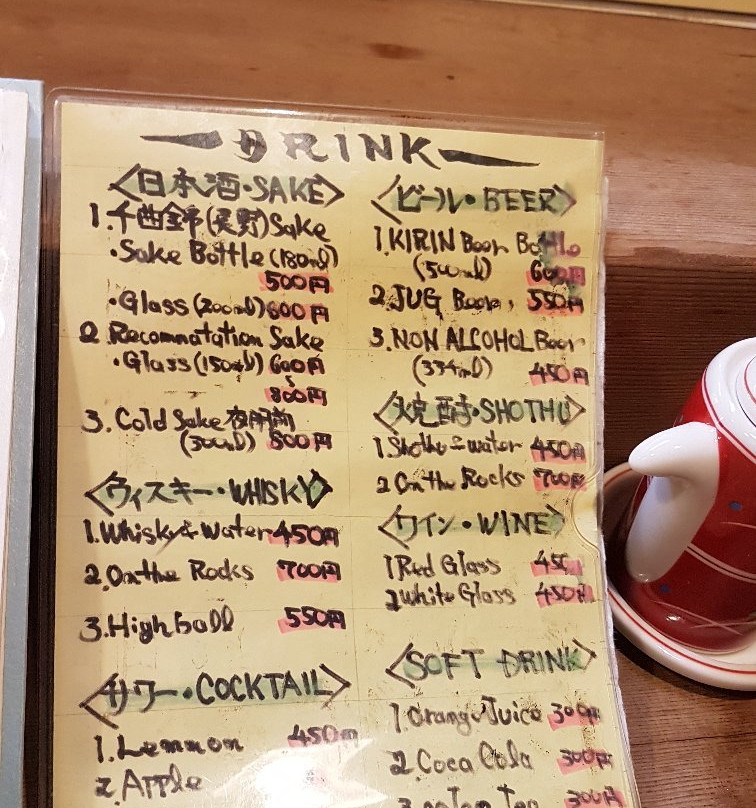 DRINK
<日本酒・SAKE>
1.千曲錦(長野)Sake
・Sake Bottle(180ml)
500円
・Glass(200ml)600円
2.Recomnatation Sake
・Glass(150ml)600円
800円
3.Cold Sake
(300ml) 800円
<ウィスキー・WHISKY>
1.Whisky&Water 450円
2.On the Rocks 700円
3.High ball 550円
<サワー・COCKTAIL>
1.Lemmon 450円
2.Apple
<ビール・BEER>
1.KIRIN Beer Bottle
(500ml) 600円
2.JUG Beer, 550円
3.NON ALCOHOL Beer
(334ml) 450円
<焼酎・SHOTHU>
1.Shothu&water 450円
2 On the Rocks 700円
<ワイン・WINE>
1 Red Glass 450
2 White Glass 450円
<SOFT DRINK>
1.Orange Juice 300円
2.Coca Cola 300円
300円